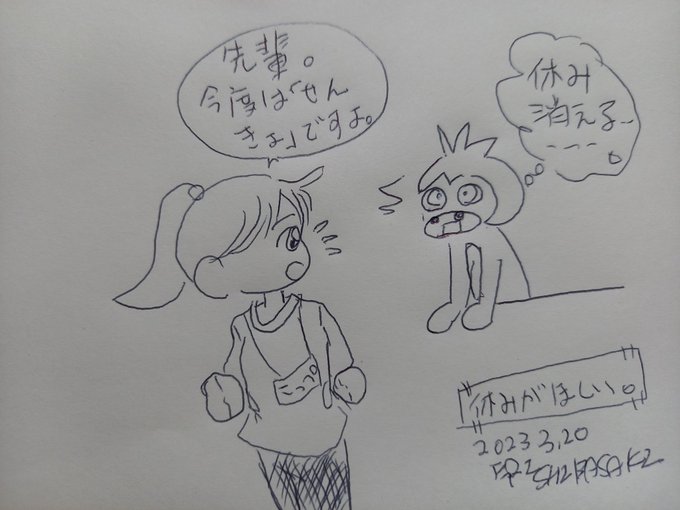 先輩。
今度は「せん
きょ」ですよ。
休み
消える…
----。
「休みがほしい。
2023 3,20